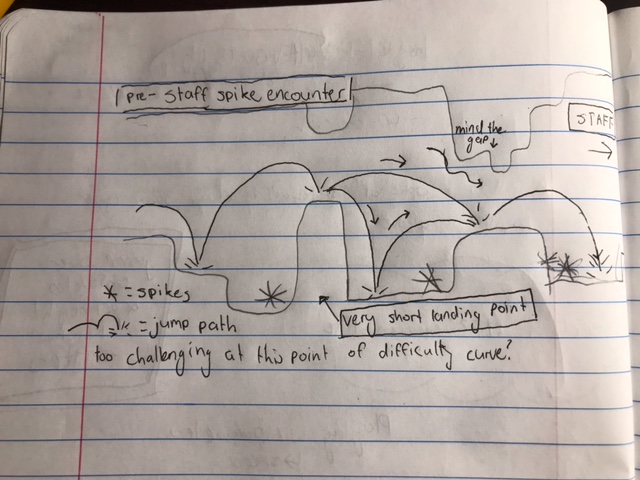 pre-staff spike encounter
mind the
gap
STAFF
* = spikes
= jump path
very short landing point
too challenging at this point of difficulty curve?